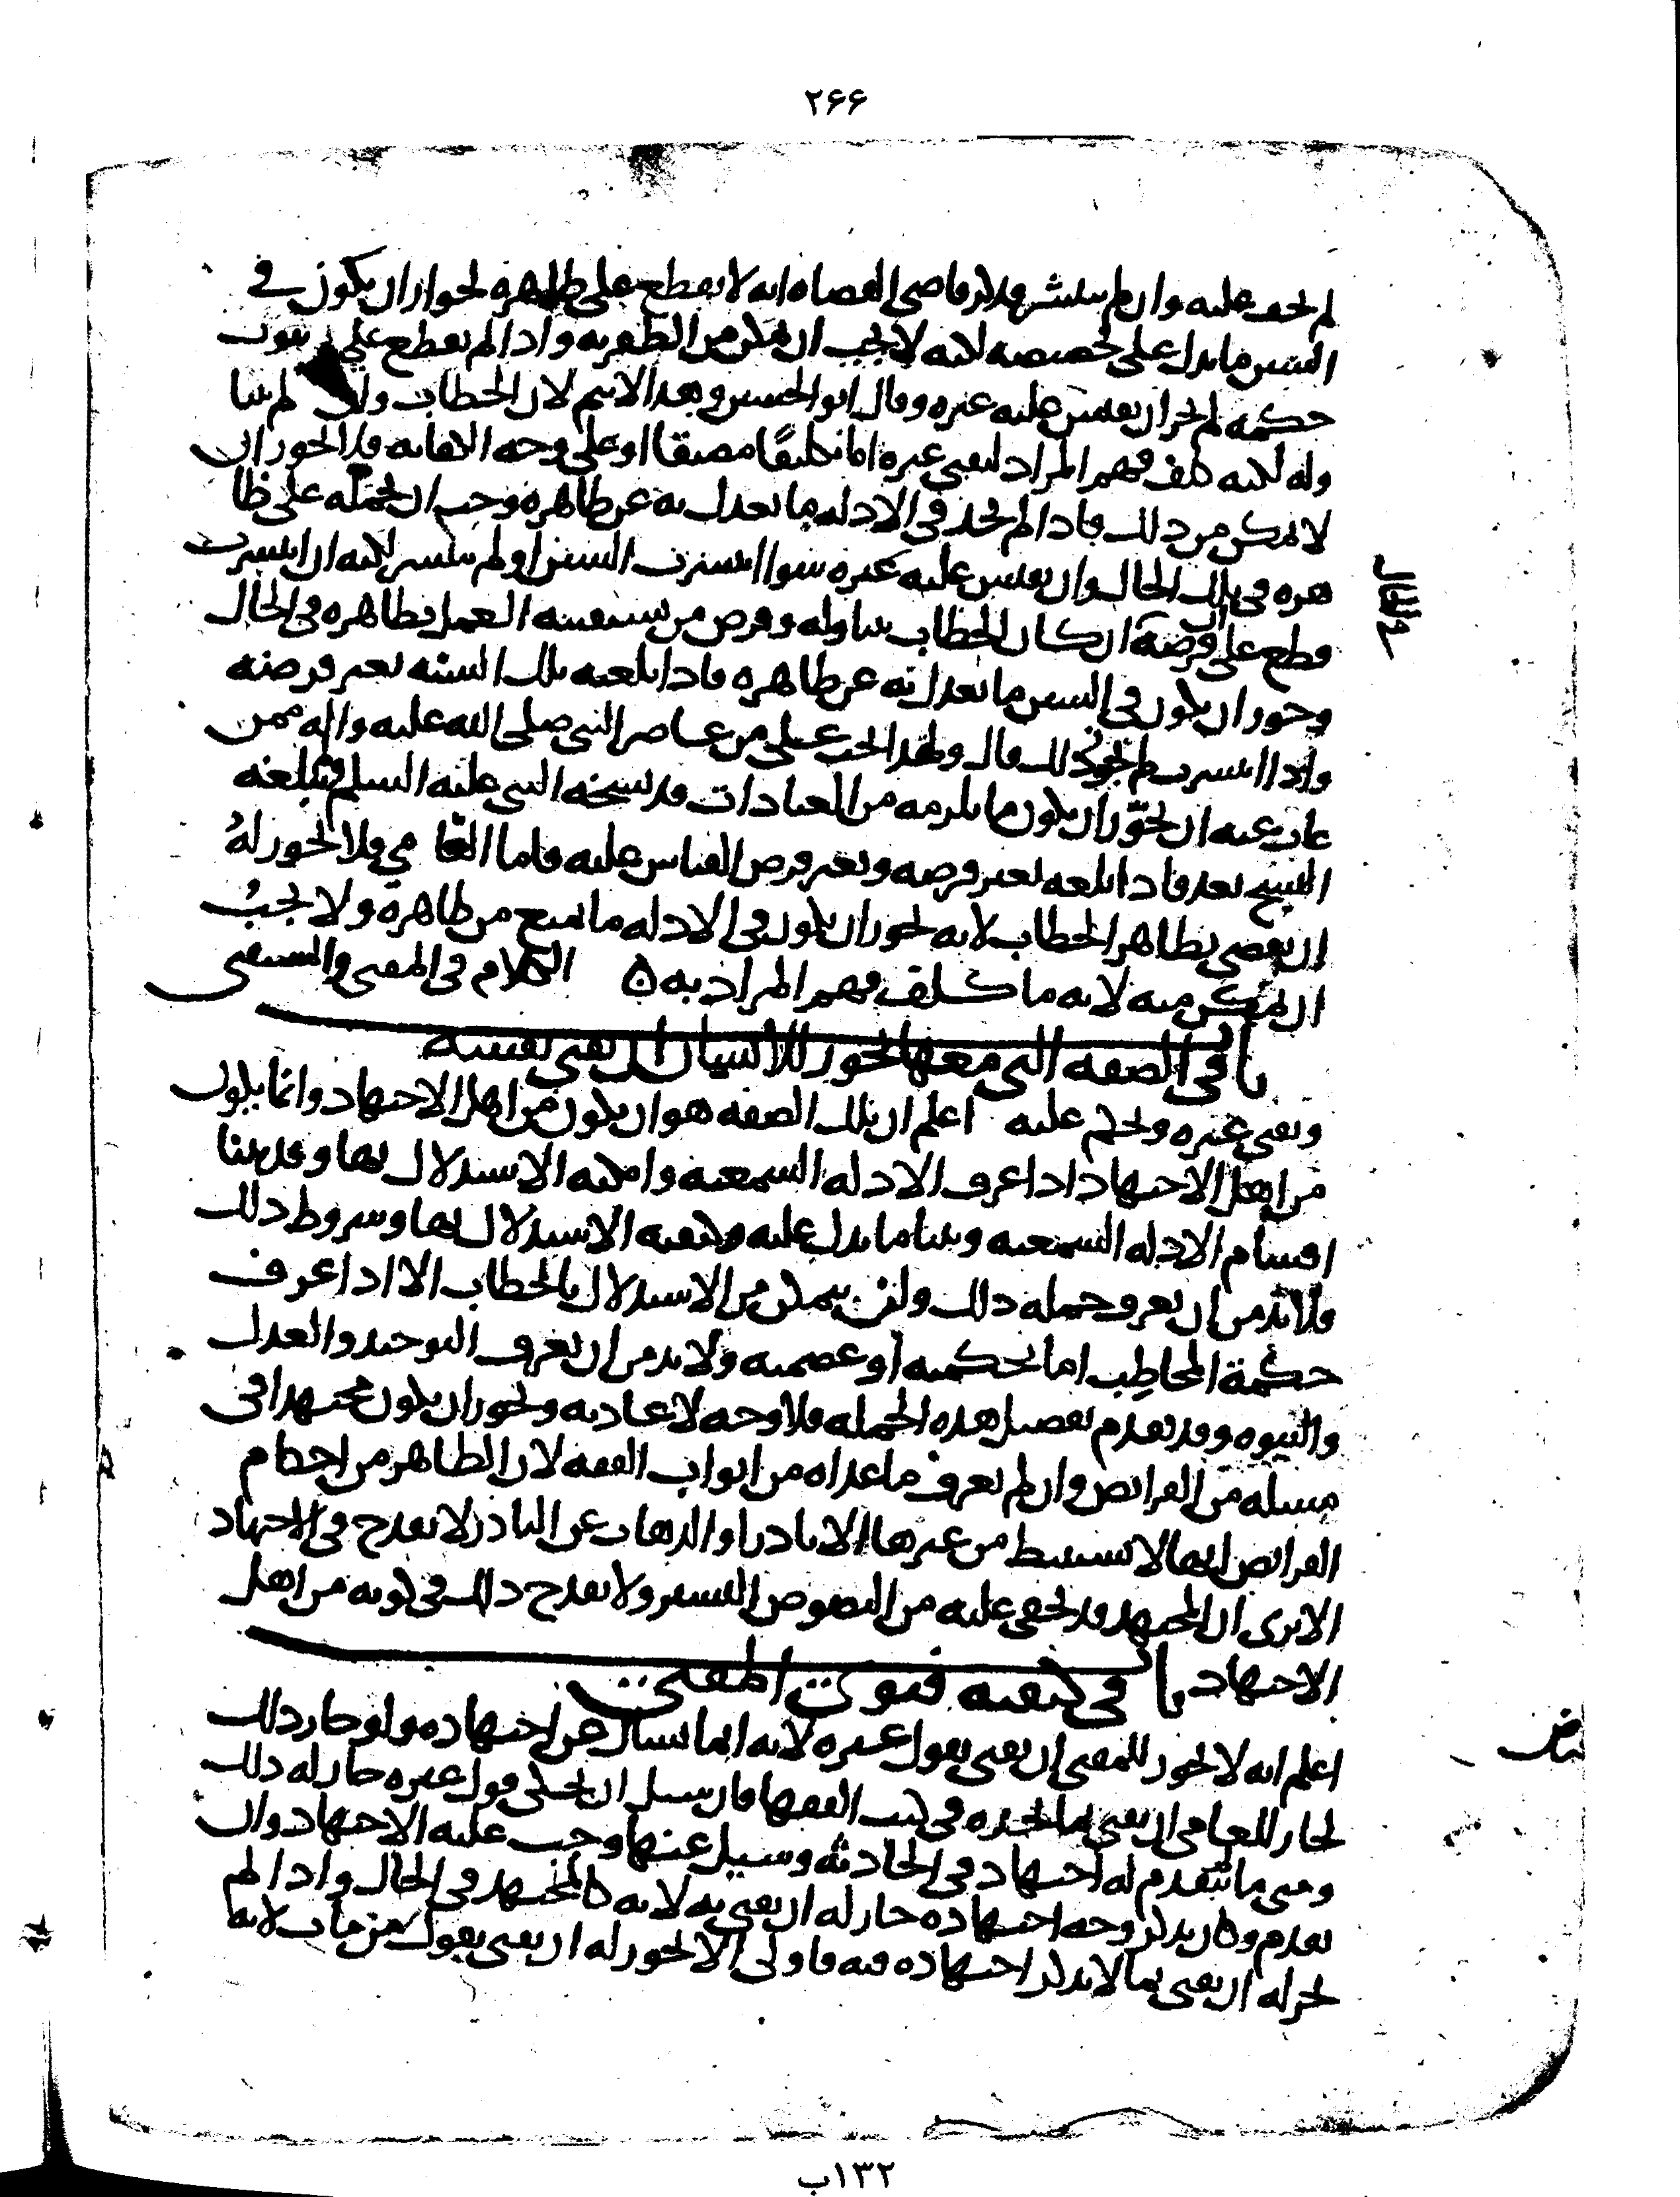 ۲۶۶
لم يخف عليه وان لم ينتشر فذكر قاضي القضاه انه لا يقطع على ظاهره لجواز ان يكون في
السنن ما يدل على تخصيصه لانه لا يجب ان يمكن من الظفر به واذا لم يقطع على ثبوت
حكمه لم يجز ان يقيس عليه غيره وقال ابو الحسين وبعد الاسم لان الخطاب وان لم يتنا
وله لكنه كلف فهم المراد ليفتي غيره اما تكليفا مضيقا او على وجه الكفايه فلا يجوز ان
لا يمكن من ذلك فاذا لم يجد في الادله ما يعدل به عن ظاهره وجب ان يحمله على ظا
هره في تلك الحال وان يقيس عليه غيره سوا انتشرت السنن او لم تنتشر لكنه ان انتشرت
قطع على ان فرضه ان كان الخطاب يتناوله وفرض من يستفتيه العمل بظاهره في الحال
وجوز ان يكون في السنن ما يعدل به عن ظاهره فاذا بلغته تلك السنه تغير فرضه
واذا انتشرت لم يجوز ذلك قال ولهذا يجب على من عاصر النبي صلى الله عليه واله ممن
غاب عنه ان يجوز ان يكون ما يلزمه من العبادات قد نسخه النبي عليه السلم فيبلغه
النسخ بعد فاذا بلغه تغير فرضه وتغير فرض القياس عليه فاما العامي فلا يجوز له
ان يقضي بظاهر الخطاب لانه يجوز ان يكون في الادله ما يمنع من ظاهره ولا يجب
ان يمكن منه لانه ما كلف فهم المراد به ه الكلام في المفتي والمستفتي
باب في الصفه التي معها يجوز للانسان ان يفتي نفسه
ويفتي غيره ويحكم عليه اعلم ان تلك الصفه هو ان يكون من اهل الاجتهاد وانما يكون
من اهل الاجتهاد اذا عرف الادله السمعيه وامكنه الاستدلال بها وقد بينا
اقسام الادله السمعيه وبينا ما يدل عليه وكيفيه الاستدلال بها وشروط ذلك
فلا بد من ان يعرف جمله ذلك ولن يتمكن من الاستدلال بالخطاب الا اذا عرف
حكمة المخاطِب اما بحكمته او عصمته ولا بد من ان يعرف التوحيد والعدل
والنبوه وقد تقدم تفصيل هذه الجمله فلا وجه لاعادته ويجوز ان يكون مجتهدا في
مسله من الفرائض وان لم يعرف ما عداه من ابواب الفقه لان الظاهر من احكام
الفرائض انها لا تستنبط من غيرها الا نادرا والذهاب عن النادر لا يقدح في الاجتهاد
الا ترى ان المجتهد قد يخفى عليه من النصوص اليسير ولا يقدح ذلك في كونه من اهل
الاجتهاد باب في كيفيه فتوى المفتي
اعلم انه لا يجوز للمفتي ان يفتي بقول غيره لانه انما يسال عن اجتهاده ولو جاز ذلك
لجاز للعامي ان يفتي بما يجده في كتب الفقها فان سئل ان يحكي قول غيره جاز له ذلك
ومتى ما لم يتقدم له اجتهاد في الحادثه وسيل عنها وجب عليه الاجتهاد وان
تقدم وكان يذكر وجه اجتهاده جاز له ان يفتي به لانه كالمجتهد في الحال واذا لم
يجز له ان يفتي بما لا يذكر اجتهاده فيه فاولى الا يجوز له ان يفتي بقول من مات لانه
بياض
۱۳۲ب